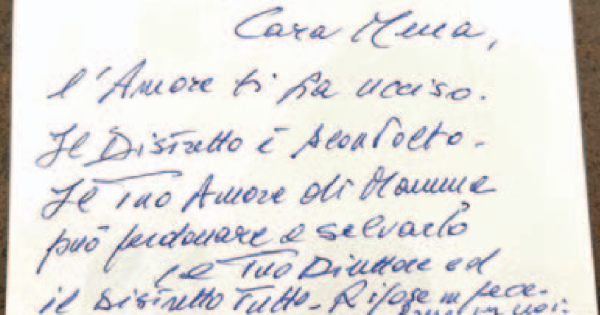 Cara Mena,
l'Amore ti ha ucciso.
Il Distretto è sconvolto.
Il Tuo Amore di Mamma
può perdonare e salvarlo
il Tuo Direttore ed
il Distretto Tutto. Riposa in pace.